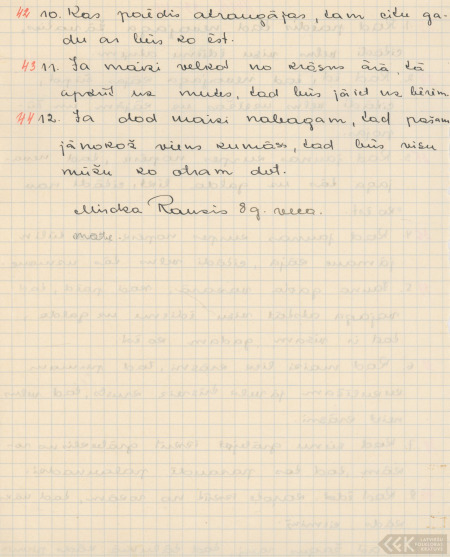 42 10. Kas paēdis atraugājas, tam citu ga-
du ar būs ko ēst.
43 11. Ja maizi velkot no krāsns ārā, tā
apkrīt uz mutes, tad būs jāiet uz bērēm.
44 12. Ja dod maizi nabagam, tad pašam
jānokož viens kumāss, tad būs visu
mūžu ko otram dot.
8 g. veca.
LATVIEŠU
FOLKLORAS
KRĀTUVE